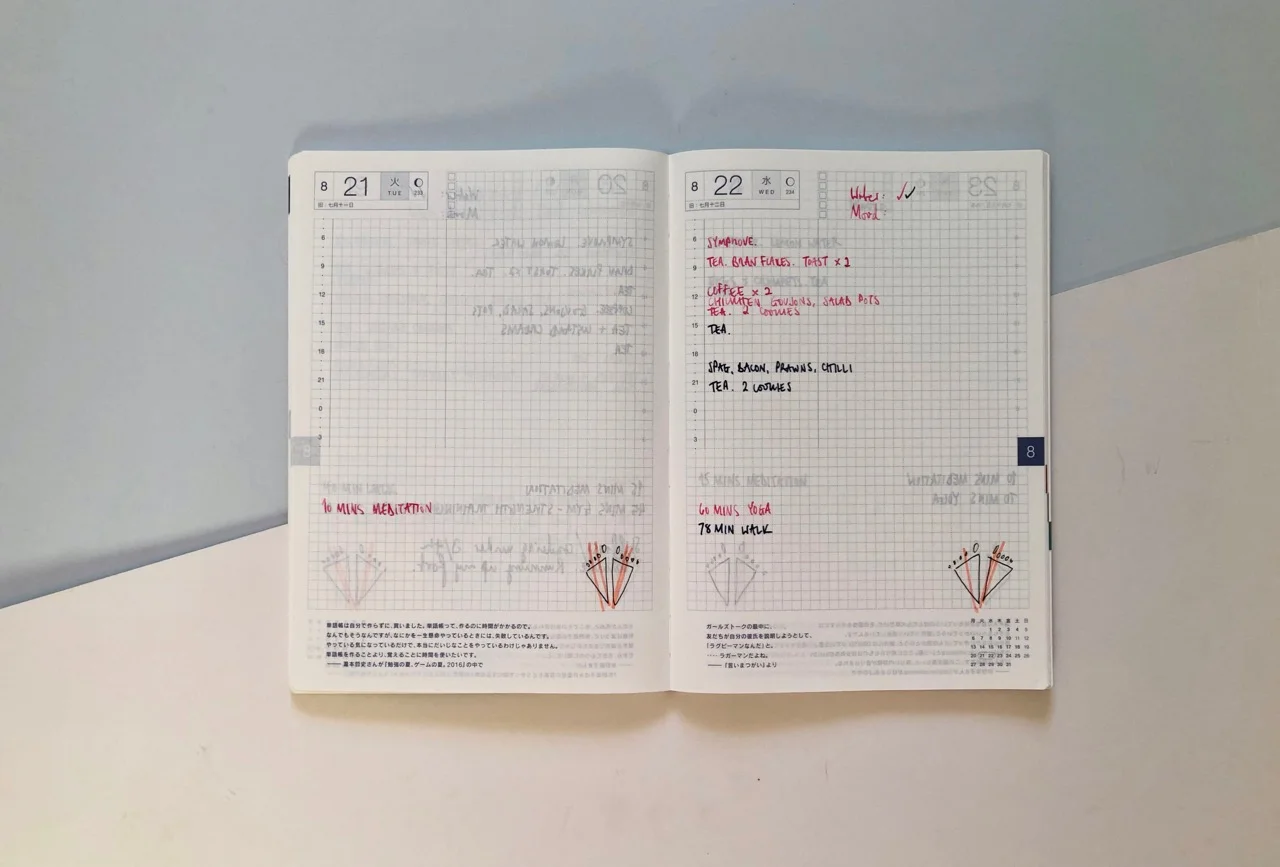 8 21 火 TUE 233
旧:七月十一日
6
9
12
15
18
21
0
3
10 MINS MEDITATION
単語帳は自分で作らずに、買いました。単語帳って、作るのに時間がかかるので。
なんでもそうなんですが、なにかを一生懸命やっているときには、失敗しているんです。
やっている気になっているだけで、本当にだいじなことをやっているわけじゃありません。
単語帳を作ることより、覚えることに時間を使いたいです。
8 22 水 WED 234
旧:七月十二日
Water: ✓✓
Mood:
6
SYMPROVE.
9
TEA. BRAN FLAKES. TOAST x 2
12
COFFEE x 2
CHICKEN GOUJONS, SALAD POTS
TEA. 2 COOKIES
15
TEA.
18
SPAG, BACON, PRAWNS, CHILLI
21
TEA. 2 COOKIES
0
3
8
60 MINS YOGA
78 MIN WALK
ガールズトークの最中に、
友だちが自分の彼氏を説明しようとして、
「ラグビーマンなんだ」と。
……ラガーマンだよね。
——『言いまつがい』より
月 火 水 木 金 土 日
1 2 3 4 5
6 7 8 9 10 11 12
13 14 15 16 17 18 19
20 21 22 23 24 25 26
27 28 29 30 31